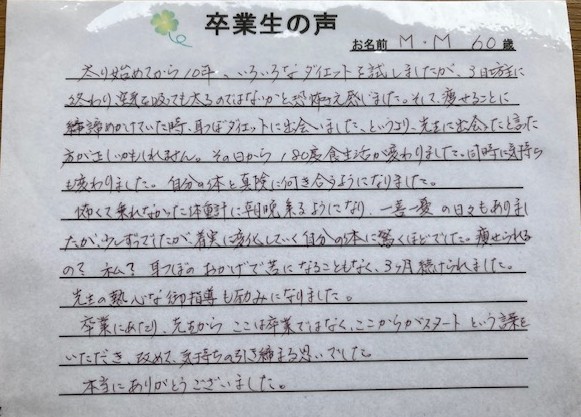 卒業生の声
お名前 M・M 60歳
太り始めてから10年、いろいろなダイエットを試しましたが、3日坊主に
終わり、空気を吸っても太るのではないかと恐怖さえ感じました。そして、痩せることに
諦めかけていた時、耳つぼダイエットに出会いました、というより、先生に出会ったと言った
方が正しいかもしれません。その日から180度食生活が変わりました。同時に気持ち
も変わりました。自分の体と真険に向き合うようになりました。
怖くて乗れなかった体重計に朝晩乗るようになり、一喜一憂の日々もありまし
たが、少しずつでしたが、着実に変化していく自分の体に驚くほどでした。痩せられる
の？私？耳つぼのおかげで苦になることもなく、3ヶ月続けられました。
先生の熱心な御指導も励みになりました。
卒業にあたり、先生から ここは卒業ではなく、ここからがスタート という言葉を
いただき、改めて、気持ちの引き締まる思いでした。
本当にありがとうございました。